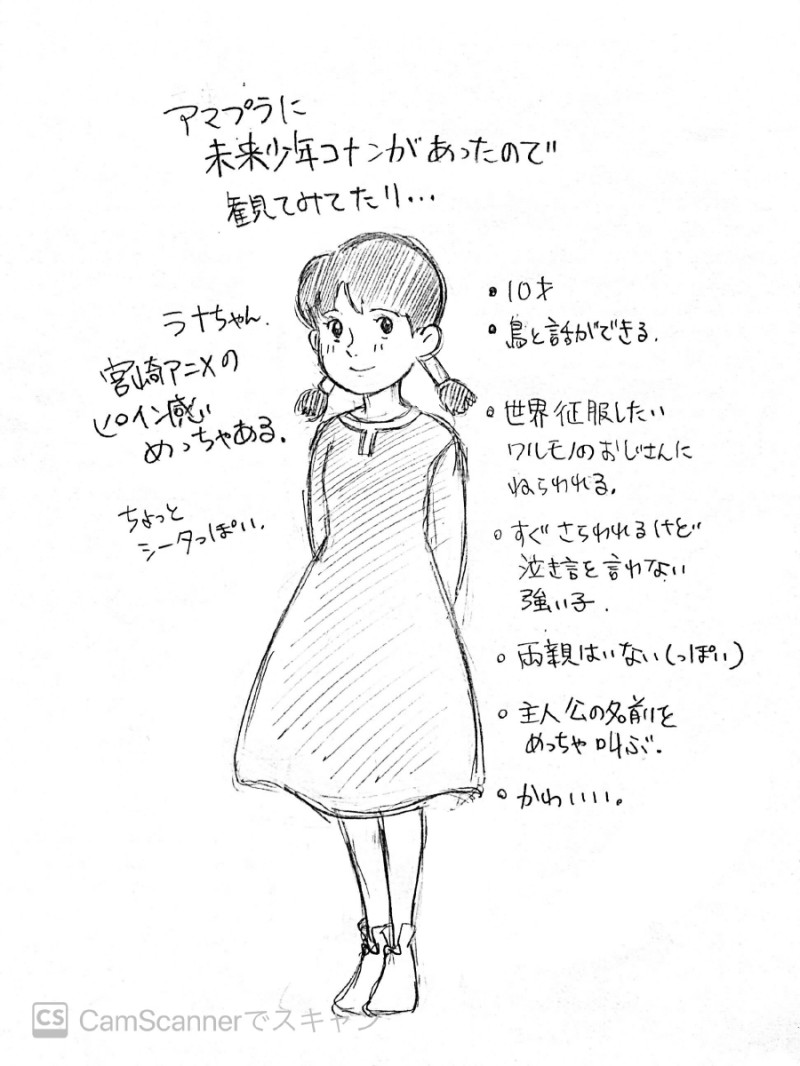 アマプラに
未来少年コナンがあったので
観てみてたり…
ラナちゃん.
宮崎アニメの
ヒロイン感
めっちゃある.
ちょっと
シータっぽい.
• 10才
• 鳥と話ができる.
• 世界征服したい
ワルモノのおじさんに
ねらわれる.
• すぐさらわれるけど
泣き言を言わない
強い子.
• 両親はいない(っぽい)
• 主人公の名前を
めっちゃ叫ぶ.
• かわいい。
CS CamScannerでスキャン